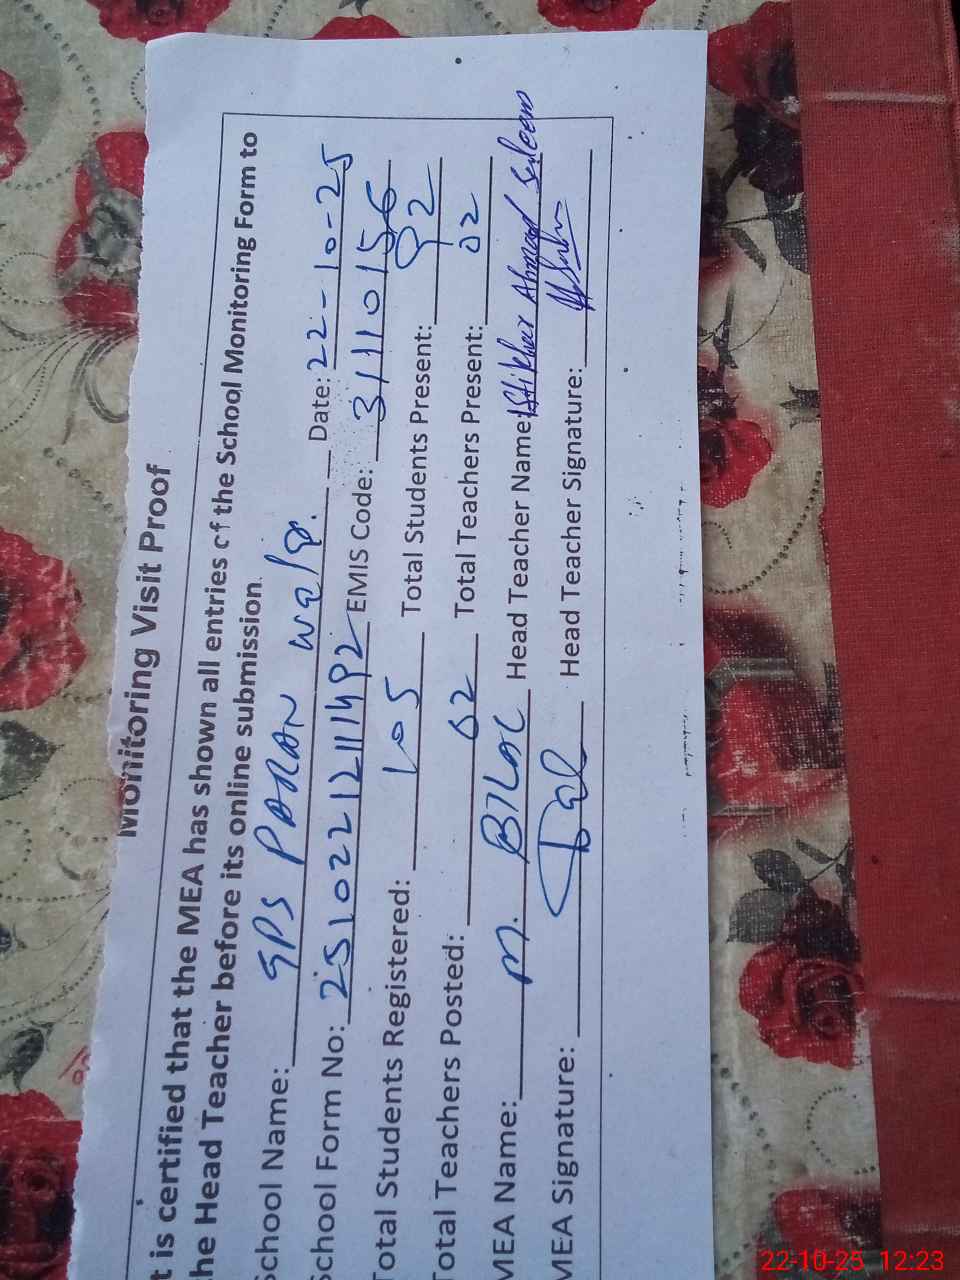 Monitoring Visit Proof
t is certified that the MEA has shown all entries of the School Monitoring Form to
he Head Teacher before its online submission.
School Name: GPS PARAN wala. Date: 22-10-25
School Form No: 2510221211492 EMIS Code: 31110156
Total Students Registered: 105 Total Students Present: 92
Total Teachers Posted: 02 Total Teachers Present: 02
MEA Name: M. BILAL Head Teacher Name: Iftikhar Ahmad Saleem
MEA Signature: Head Teacher Signature:
22-10-25 12:23